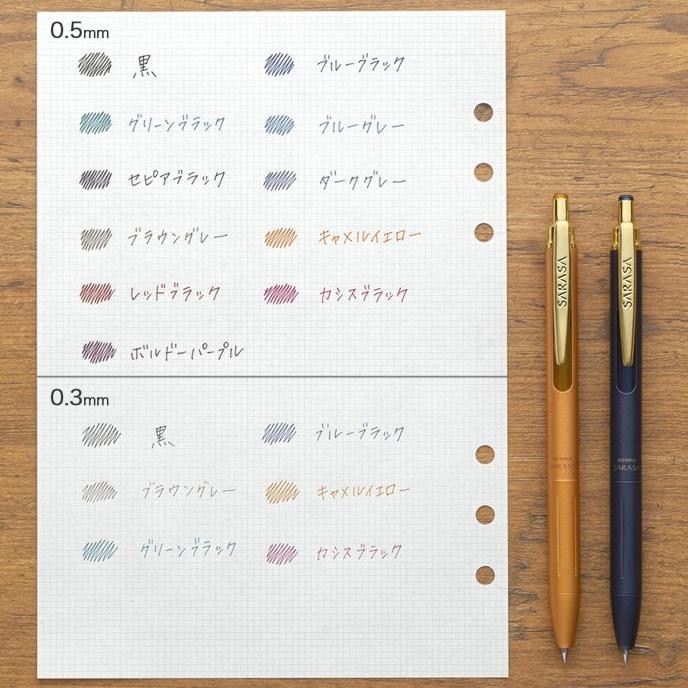 0.5mm
黒 ブルーブラック
グリーンブラック ブルーグレー
セピアブラック ダークグレー
ブラウングレー キャメルイエロー
レッドブラック カシスブラック
ボルドーパープル
0.3mm
黒 ブルーブラック
ブラウングレー キャメルイエロー
グリーンブラック カシスブラック
SARASA
SARASA
SARASA
SARASA